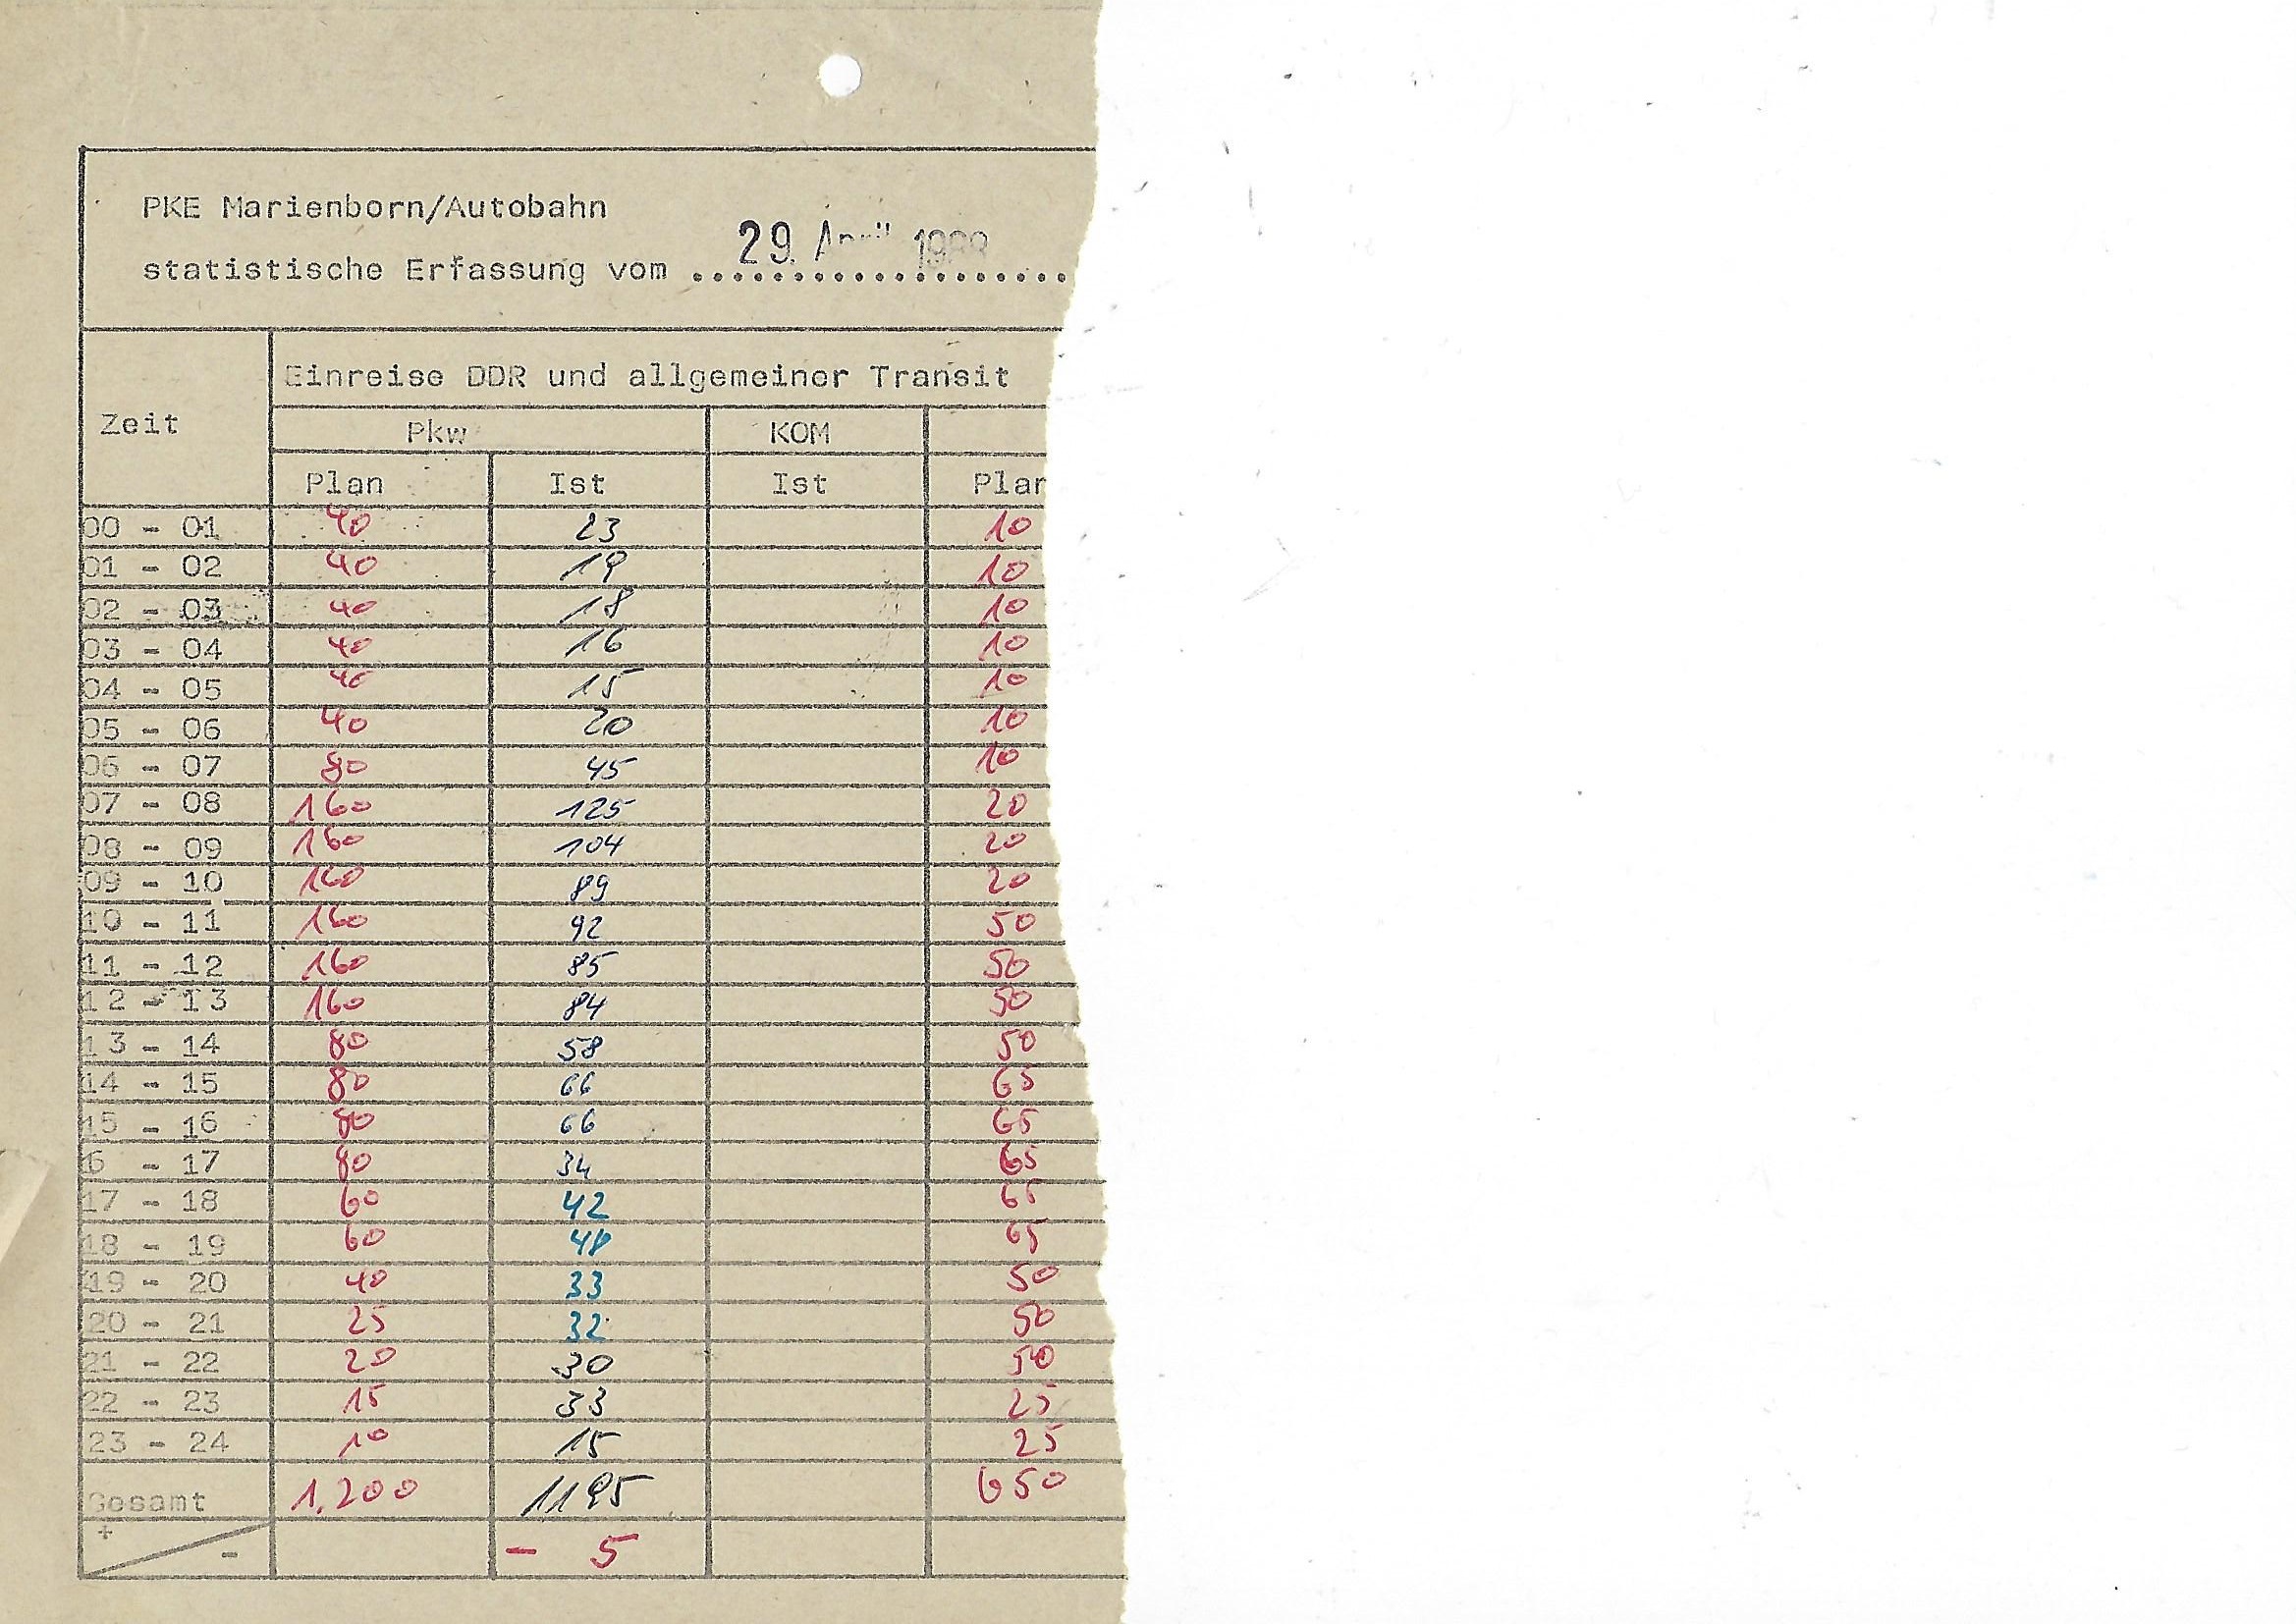 PKE Marienborn/Autobahn
29. April
statistische Erfassung vom ....................
Zeit
Einreise DDR und allgemeiner Transit
Pkw KOM
Plan Ist Ist Plan
00 - 01 40 23 10
01 - 02 40 19 10
02 - 03 40 18 10
03 - 04 40 16 10
04 - 05 40 15 10
05 - 06 40 20 10
06 - 07 80 45 10
07 - 08 160 125 20
08 - 09 160 104 20
09 - 10 160 89 20
10 - 11 160 92 50
11 - 12 160 85 50
12 - 13 160 84 50
13 - 14 80 58 50
14 - 15 80 66 65
15 - 16 80 66 65
6 - 17 80 34 65
17 - 18 60 42 65
18 - 19 60 48 65
19 - 20 40 33 50
20 - 21 25 32 50
21 - 22 20 30 50
22 - 23 15 33 25
23 - 24 10 15 25
Gesamt 1.200 1195 650
+
- - 5